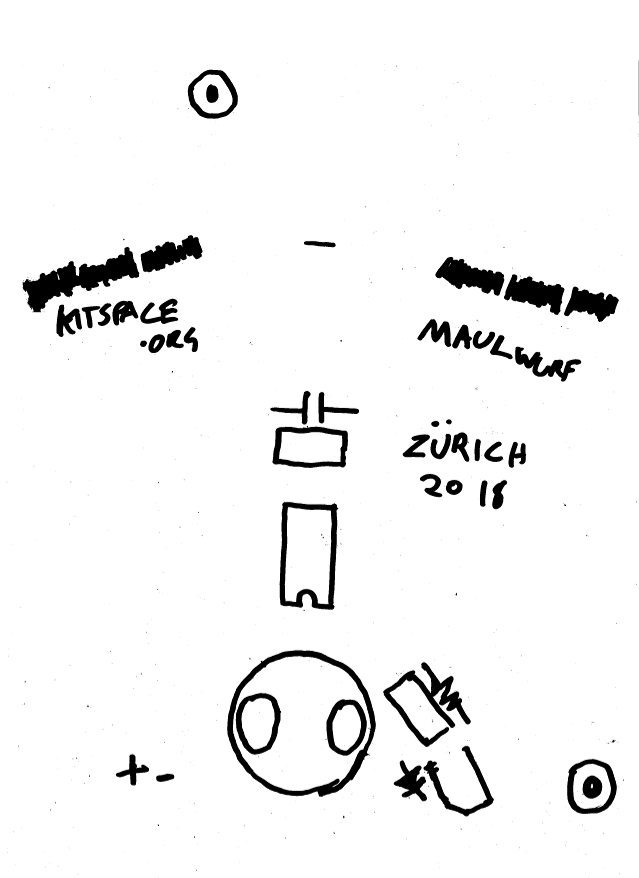 KITSPACE
.ORG
MAULWURF
ZÜRICH
2018
+ -